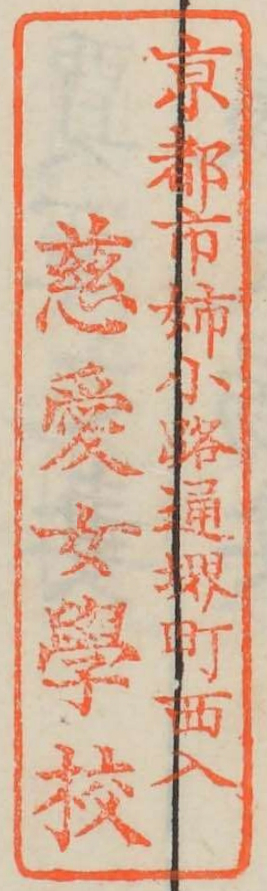 京都市姉小路通堺町西入
慈愛女學校